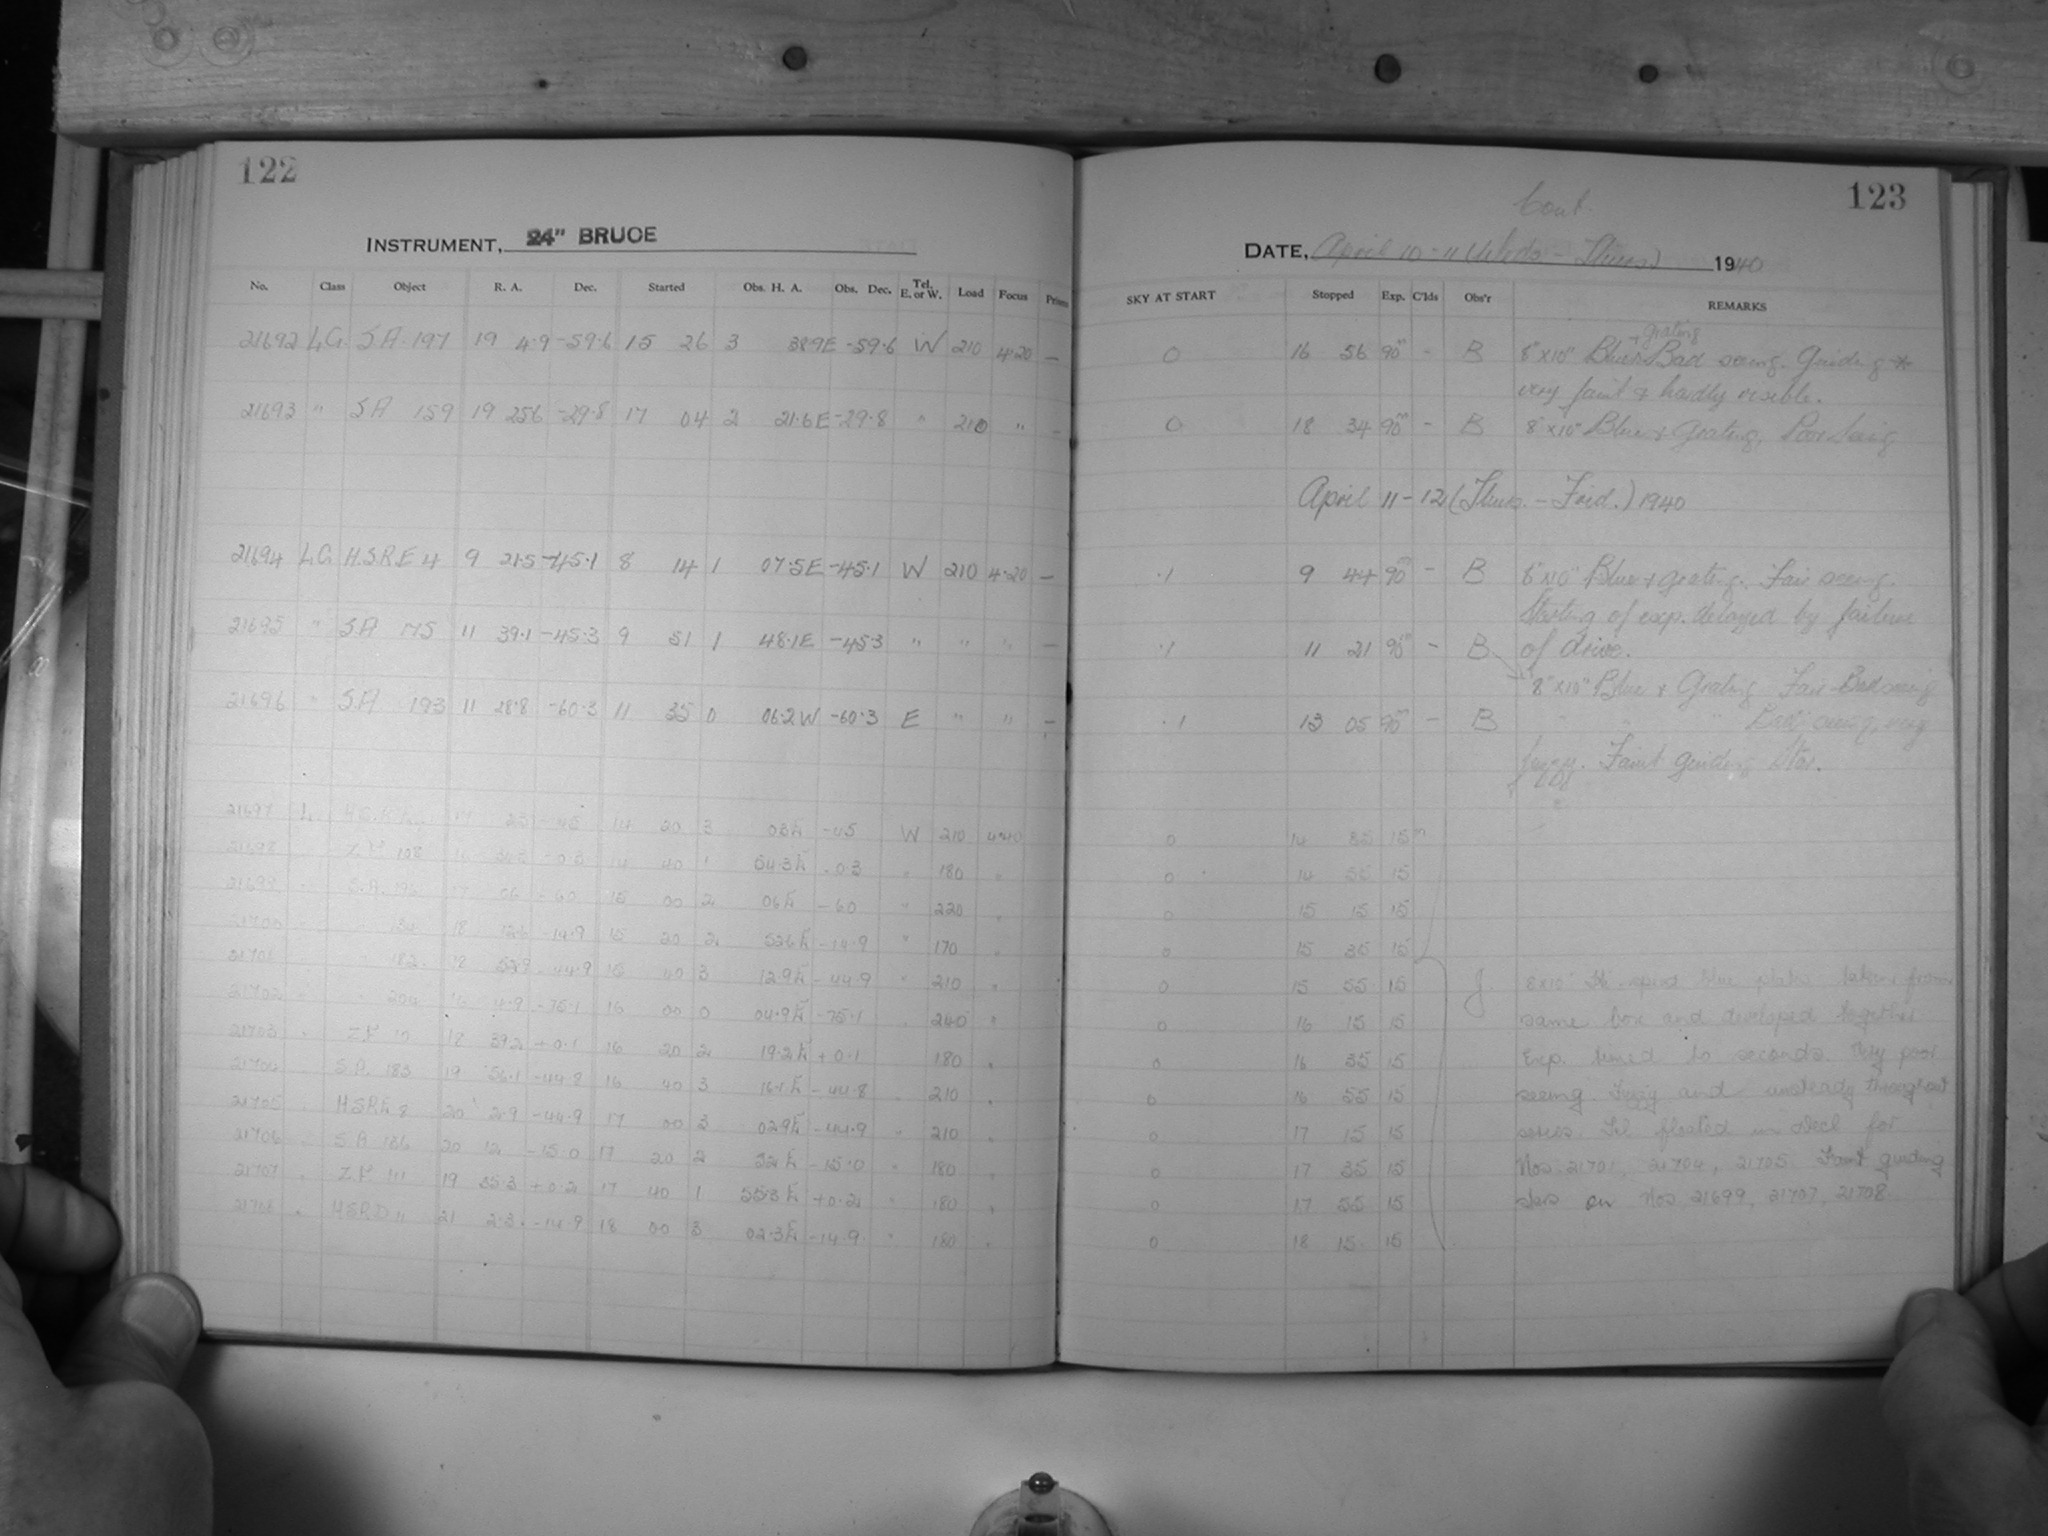 122
INSTRUMENT, 24" BRUCE
No. Class Object R. A. Dec. Started Obs. H. A. Obs. Dec. Tel. E. or W. Load Focus
21692 LG SA 197 19 4.9 -59.6 15 26 3 38.9E -59.6 W 210 4.20 –
21693 " SA 159 19 25.6 -29.8 17 04 2 21.6E -29.8 " 210 " –
21694 LG H.S.R.E 4 9 21.5 -45.1 8 14 1 07.5E -45.1 W 210 4.20 –
21695 " SA 175 11 39.1 -45.3 9 51 1 48.1E -45.3 " " " –
21696 " SA 193 11 28.8 -60.3 11 35 0 06.2W -60.3 E " " –
21697 L 14 20 3 -45 W 210 4.40
21698 14 40 1 04.3E -0.3 " 180 "
21699 S.A. 17 06 -60 15 00 2 06E -60 " 220 "
21700 18 -14.9 15 20 2 -14.9 " 170 "
21701 " 182 18 52.9 -44.9 15 40 3 12.9E -44.9 " 210 "
21702 16 4.9 -75.1 16 00 0 04.9E -75.1 240 "
21703 18 39.2 +0.1 16 20 2 19.2E +0.1 180 "
S.A. 183 19 56.1 -44.8 16 40 3 16.1E -44.8 210 "
21705 HSRE 8 20 2.9 -44.9 17 00 3 02.9E -44.9 " 210 "
21706 S.A 136 20 12 -15.0 17 20 2 32E -15.0 " 180 "
21707 19 35.3 +0.2 17 40 1 55.3E +0.2 " 180 "
21708 HSRD 11 21 2.3 -14.9 18 00 3 02.3E -14.9 " 180 "
123
Cont.
DATE, April 10-11 (Weds - Thurs) 1940
SKY AT START Stopped Exp. C'lds Obs'r REMARKS
0 16 56 90m - B 8"x10" Blue + grating Bad seeing. Guiding *
very faint & hardly visible.
0 18 34 90m - B 8"x10" Blue & Grating, Poor Seeing
April 11-12 (Thurs. - Frid.) 1940
.1 9 44 90m - B 8"x10" Blue & grating. Fair seeing.
Starting of exp. delayed by failure
.1 11 21 90m - B of drive.
8"x10" Blue & Grating Fair-Bad seeing
.1 13 05 90m - B " " " Bad seeing, very
fuzzy. Faint guiding Star.
0 14 35 15m
0 14 55 15
0 15 15 15
0 15 35 15
0 15 55 15 J. 8x10" Hi-speed blue plates taken from
0 16 15 15 same box and developed together
0 16 35 15 Exp. timed to seconds. Very poor
0 16 55 15 seeing. Fuzzy and unsteady throughout
0 17 15 15 series. Tel floated in decl for
0 17 35 15 Nos. 21701, 21704, 21705. Faint guiding
0 17 55 15 stars on Nos 21699, 21707, 21708.
0 18 15 15